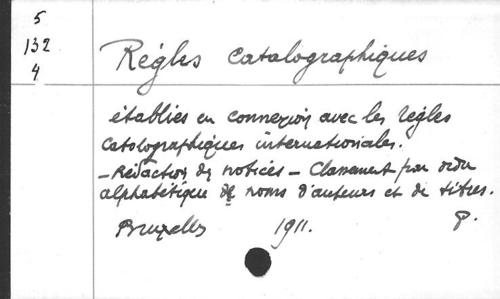 5
132
4
Règles catalographiques
établies en connexion avec les règles
catalographiques internationales.
– Rédaction des notices – Classement par ordre
alphabétique de noms d'auteurs et de titres.
Bruxelles 1911. P.